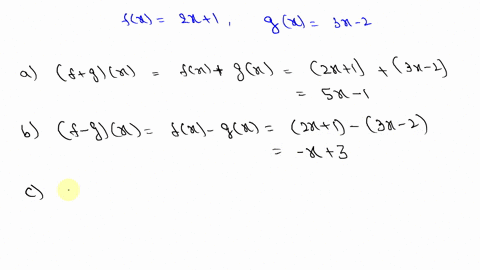 f(x) = 2x+1 , g(x) = 3x-2
a) (f+g)(x) = f(x) + g(x) = (2x+1) + (3x-2)
= 5x-1
b) (f-g)(x) = f(x) - g(x) = (2x+1) - (3x-2)
= -x+3
c)